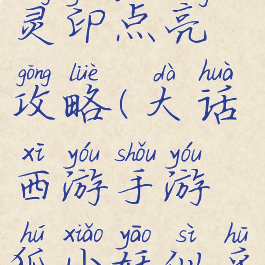 灵印点亮
gōng lüè dà huà
攻略(大话
xī yóu shǒu yóu
西游手游
hú xiǎo yāo sì hū
狐小妖似乎